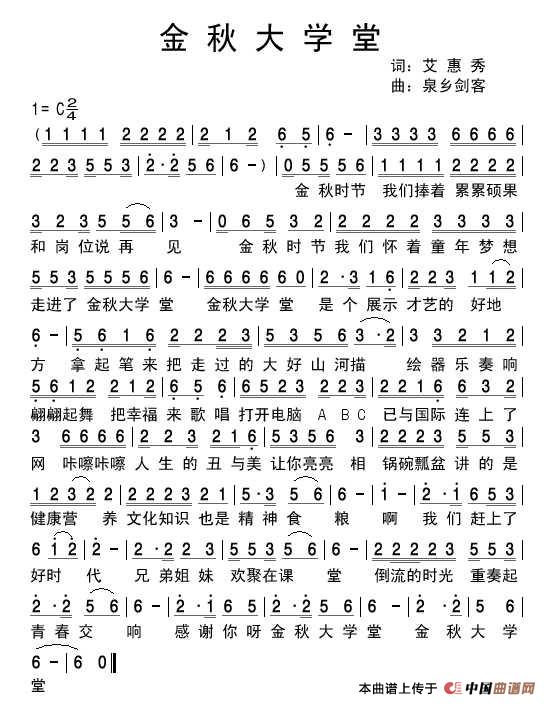 金秋大学堂
词：艾惠秀
曲：泉乡剑客
1=C 2/4
(1 1 1 1 2 2 2 2 | 2 1 2 6 5 | 6 - | 3 3 3 3 6 6 6 6 |
2 2 3 5 5 3 | 2·2 5 6 | 6 -) | 0 5 5 5 6 | 1 1 1 1 2 2 2 2 |
金秋时节 我们捧着 累累硕果
3 2 3 5 5 6 | 3 - | 0 6 5 3 2 | 2 2 2 1 3 3 3 2 |
和岗位说再 见 金秋时节我们怀着童年梦想
5 5 3 5 5 5 6 | 6 - | 6 6 6 6 6 6 0 | 2·3 1 6 | 2 2 3 1 1 2 |
走进了 金秋大学 堂 金秋大学 堂 是个展示 才艺的 好地
6 - | 5 6 1 6 | 2 2 2 3 | 5 3 5 6 | 3·2 | 3 3 2 1 2 |
方 拿起笔来把走过的大好山河描 绘器乐奏响
5 6 1 2 2 2 | 6 5 6 5 2 2 | 6 5 2 3 2 2 2 | 2 2 1 6 6 3 2 |
翩翩起舞 把幸福 来歌唱 打开电脑 A B C 已与国际 连上了
3 6 6 6 6 | 2 3 2 2 1 6 | 5 3 5 6 5 | 2 2 2 3 5 5 3 |
网 咔嚓咔嚓 人生的丑与美 让你亮亮 相 锅碗瓢盆 讲的是
1 2 3 2 2 | 2 2 3 2 2 1 | 5·3 5 5 6 | 6 - | 2·1 6 5 5 3 |
健康营 养 文化知识 也是精神食 粮 啊 我们赶上了
6 1 2 | 2 - | 2·2 2 3 | 5 5 3 5 | 6 - | 2 2 2 2 5 5 3 |
好时 代 兄弟姐妹 欢聚在课 堂 倒流的时光 重奏起
2·2 5 6 | 6 - | 1·2 2 2 | 5 3 5 5 6 | 6 - | 2·2 5 6 |
青春交 响 感谢你呀金秋大学堂 金秋大学
6 - | 6 6 0 ‖
堂
本曲谱上传于 中国曲谱网